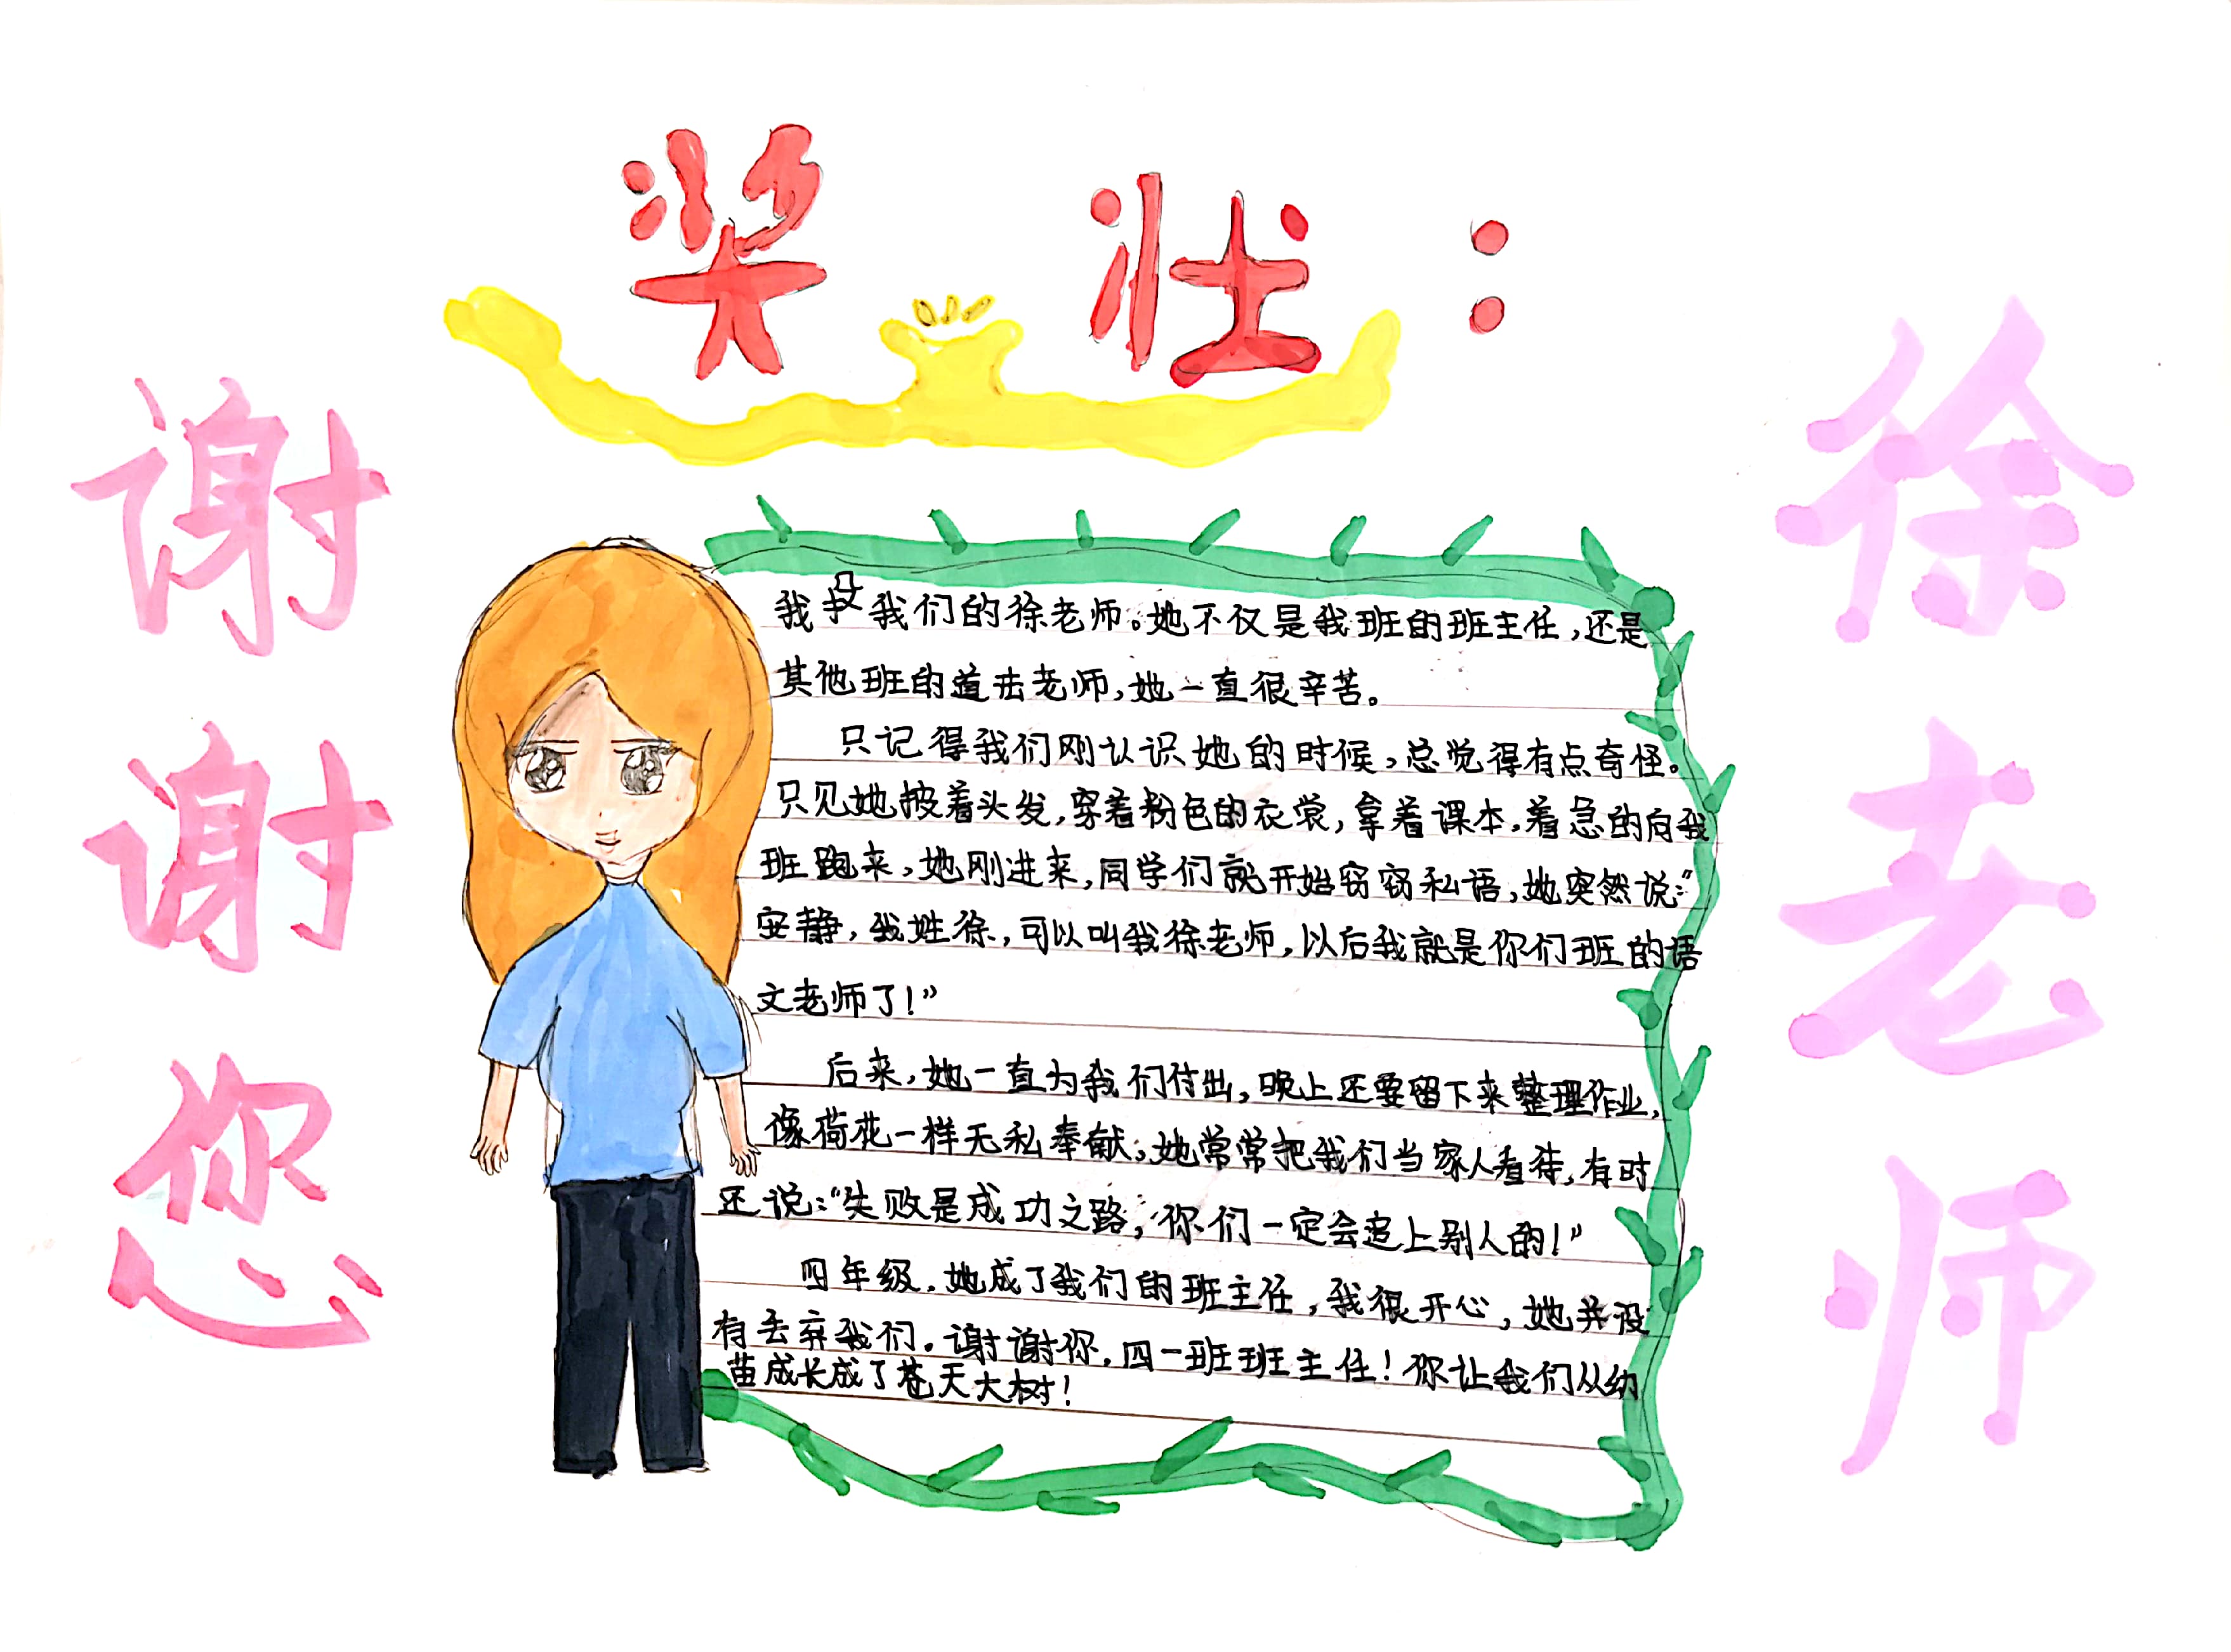 奖状：
谢谢您
徐老师
我投我们的徐老师。她不仅是我班的班主任,还是
其他班的道击老师,她一直很辛苦。
只记得我们刚认识她的时候,总觉得有点奇怪。
只见她披着头发,穿着粉色的衣裳,拿着课本,着急的向我
班跑来,她刚进来,同学们就开始窃窃私语,她突然说:“
安静,我姓徐,可以叫我徐老师,以后我就是你们班的语
文老师了!”
后来,她一直为我们付出,晚上还要留下来整理作业,
像荷花一样无私奉献,她常常把我们当家人看待,有时
还说:“失败是成功之路,你们一定会追上别人的!”
四年级,她成了我们的班主任,我很开心,她并没
有丢弃我们。谢谢你,四一班班主任!你让我们从幼
苗成长成了苍天大树!